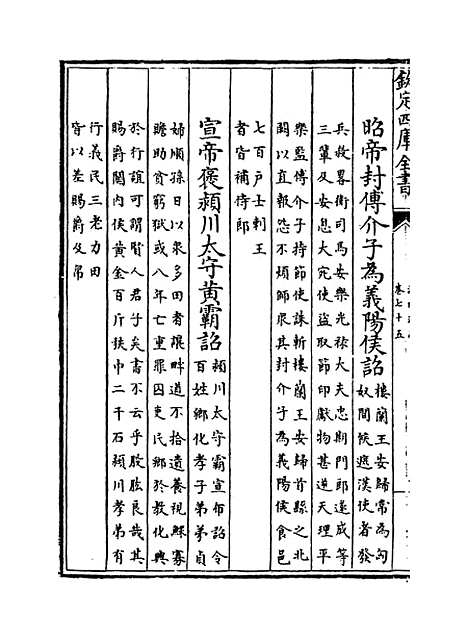 欽定四庫全書
卷七十五
昭帝封傅介子為義陽侯詔
樓蘭王安歸常為匈
奴間候遮漢使者發
兵殺畧衛司馬安樂光祿大夫忠期門郎遂成等
三輩及安息大宛使盜取節印獻物甚逆天理平
樂監傅介子持節使誅斬樓蘭王安歸首縣之北
闕以直報怨不煩師衆其封介子為義陽侯食邑
七百户士刺王
者皆補侍郎
宣帝褒潁川太守黄霸詔
潁川太守霸宣布詔令
百姓鄉化孝子弟弟貞
婦順孫日以衆多田者讓畔道不拾遺養視鰥寡
贍助貧窮獄或八年亡重罪囚吏民鄉於教化興
於行誼可謂賢人君子矣書不云乎股肱良哉其
賜爵關内侯黄金百斤秩中二千石潁川孝弟有
行義民三老力田
皆以差賜爵及帛